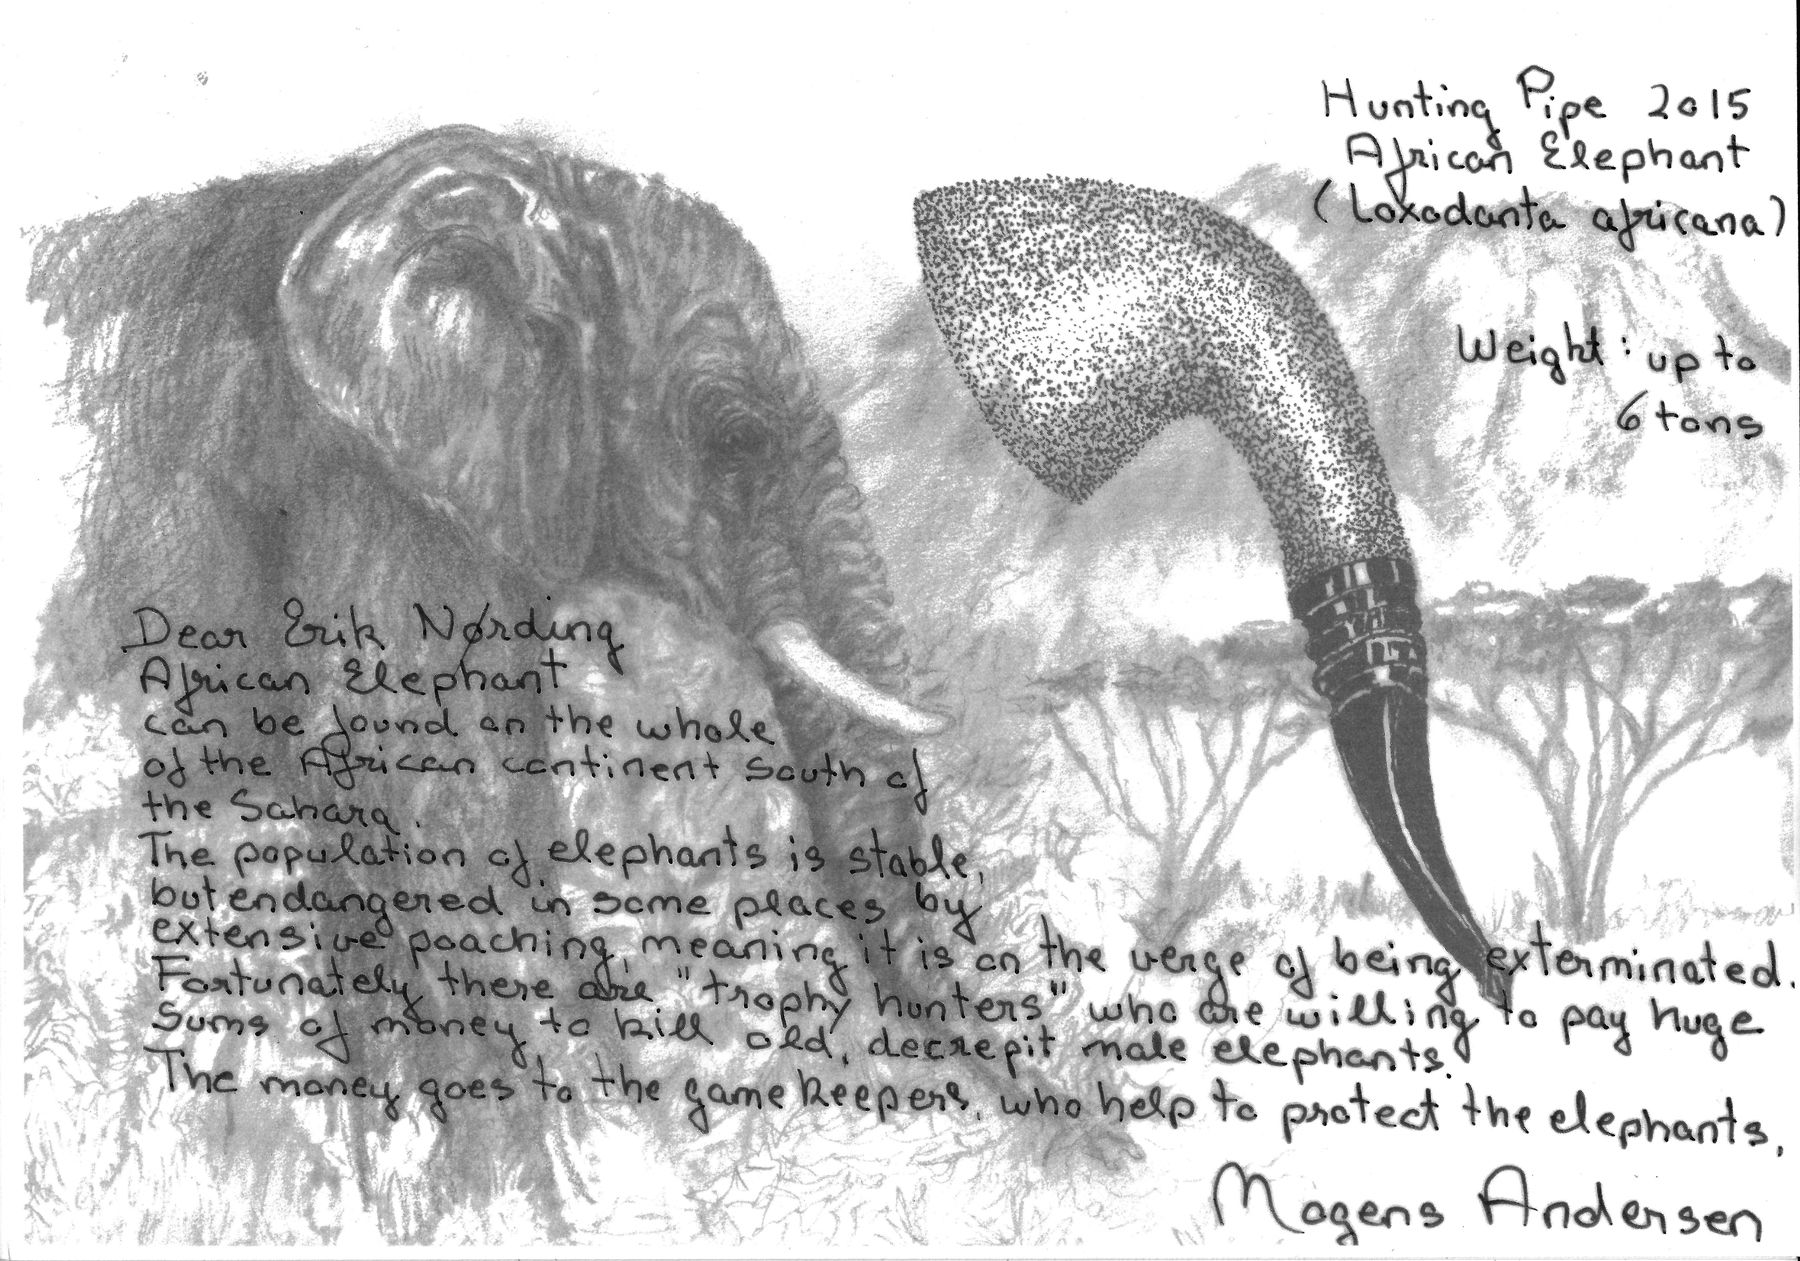 Hunting Pipe 2015
African Elephant
(Loxodanta africana)
Weight: up to
6 tons
Dear Erik Nørding
African Elephant
can be found on the whole
of the African continent south of
the Sahara.
The population of elephants is stable,
but endangered in some places by
extensive poaching, meaning it is on the verge of being exterminated.
Fortunately there are "trophy hunters" who are willing to pay huge
sums of money to kill old, decrepit male elephants.
The money goes to the game keepers, who help to protect the elephants,
Mogens Andersen